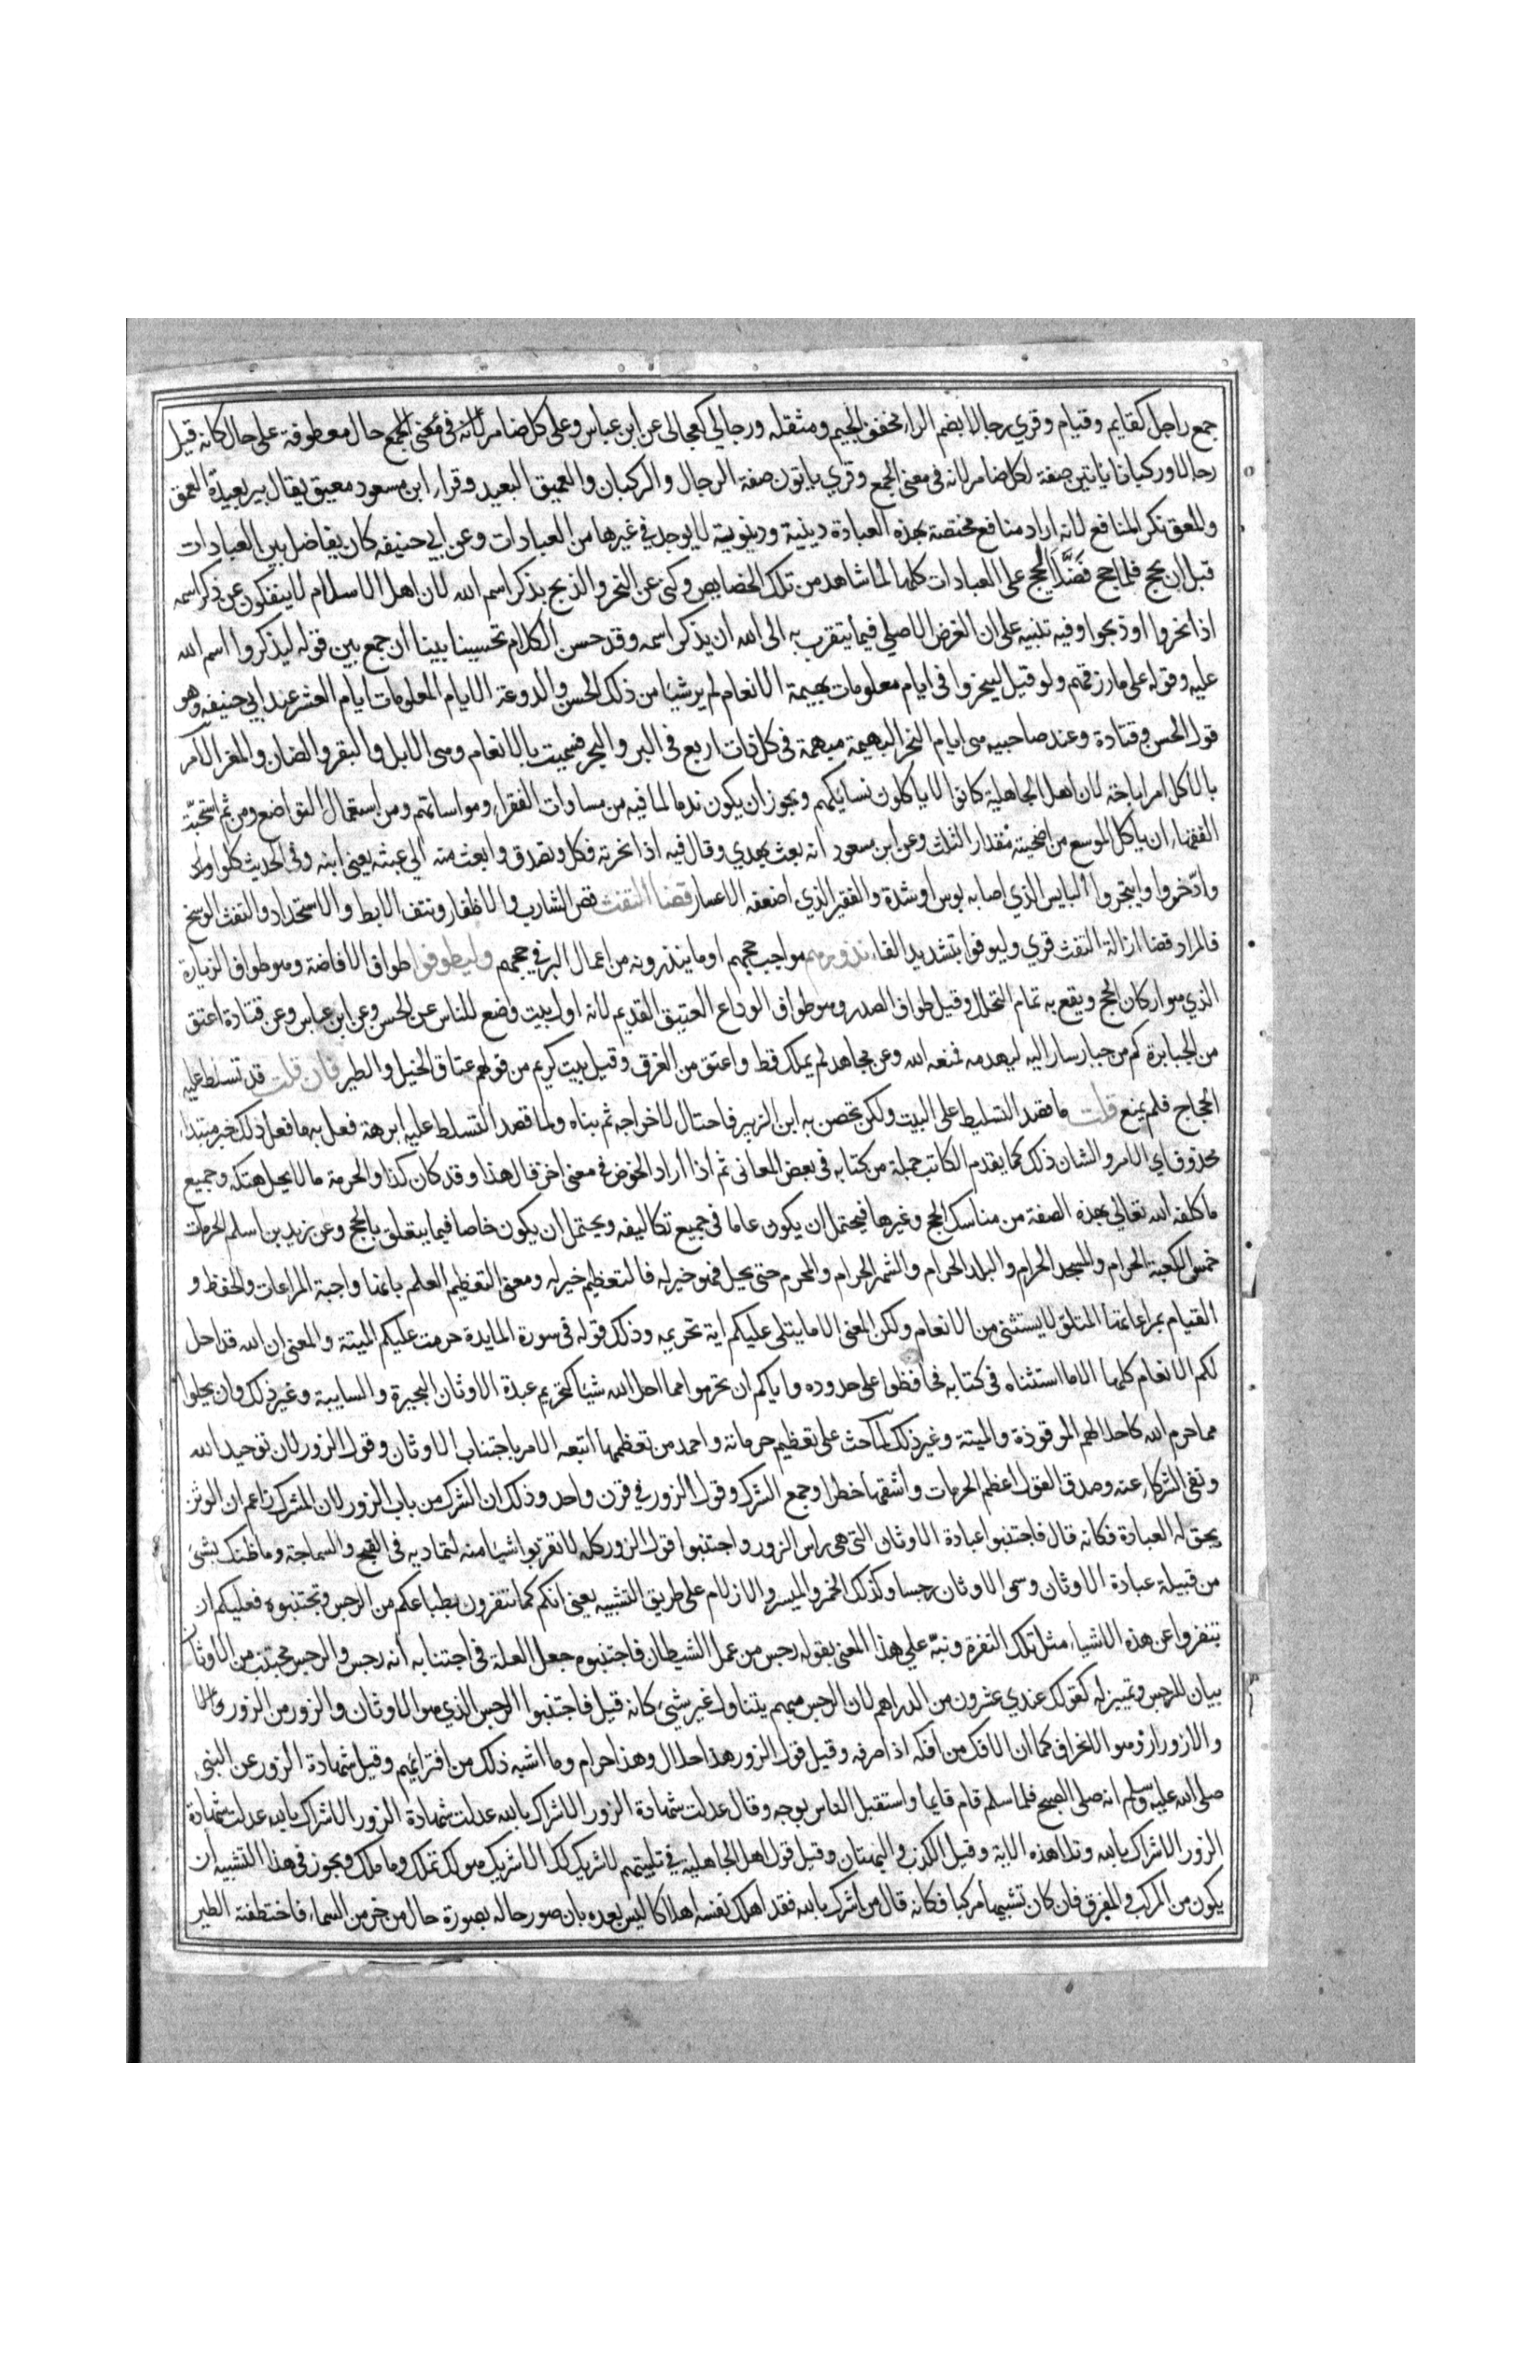 جمع راجل كقايم وقيام وقري رجالا بضم الراء مخفف الجيم ومثقله ورجالي كعجالى عن ابن عباس وعلى كل ضامر لانه في معنى الجمع حال معطوفة على حال كانه قيل
رجالا وركبانا ياتين صفة لكل ضامر لانه في معنى الجمع وقري ياتون صفة الرجال والركبان والعميق البعيد وقراء ابن مسعود معيق يقال بير بعيدة العمق
والمعق نكر المنافع لانه اراد منافع مختصة بهذه العبادة دينية ودينوية لا يوجد في غيرها من العبادات وعن ابي حنيفه كان يفاضل بين العبادات
قبل ان يحج فلما حج فضل الحج على العبادات كلها لما شاهد من تلك الخصايص وكنى عن النحر والذبح بذكر اسم الله لان اهل الاسلام لا ينفكون عن ذكر اسمه
اذا نحروا او ذبحوا وفيه تنبيه على ان الغرض الاصلي فيما يتقرب به الى الله ان يذكر اسمه وقد حسن الكلام تحسينا بينا ان جمع بين قوله ليذكروا اسم الله
عليه وقوله على ما رزقهم ولو قيل لينحروا في ايام معلومات بهيمة الانعام لم ير شيا من ذلك الحسن والروعة الايام المعلومات ايام العشر عند ابي حنيفه وهو
قول الحسن وقتادة وعند صاحبيه هي ايام النحر البهيمة مبهمة في كل ذات اربع في البر والبحر فبينت بالانعام وهي الابل والبقر والضان والمعز الامر
بالاكل امر اباحة لان اهل الجاهلية كانوا لا ياكلون نسايكهم ويجوز ان يكون ندما لما فيه من مساوات الفقراء ومواساتهم ومن استعمال التواضع ومن ثم استحبّ
الفقهاء ان ياكل الموسع من اضحيته مقدار الثلث وعن ابن مسعود انه بعث بهدي وقال فيه اذا نحرته فكل وتصدق وابعث منه الي عتبة يعني ابنه وفي الحديث كلوا واد
وادّخروا وايتجروا البايس الذي اصابه بوس اوشدة والفقير الذي اضعفه الاعسار قضا التفث قص الشارب والاظفار ونتف الابط والاستحداد والتفث الوسخ
فالمراد قضا ازالة التفث قري وليوفوا بتشديد الفاء نذورهم مواجب حجهم او ما ينذرونه من اعمال البر في حجهم وليطوفوا طواف الافاضة وهو طواف الزيارة
الذي هو اركان الحج ويقع به تمام التحلل وقيل طواف الصدر وهو طواف الوداع العتيق القديم لانه اول بيت وضع للناس عن الحسن وعن ابن عباس وعن قتادة اعتق
من الجبابرة كم من جبار سار اليه ليهدمه فمنعه الله وعن مجاهد لم يملك قط واعتق من الغرق وقيل بيت كريم من قولهم عتاق الخيل والطير فان قلت قد تسلط عليه
الحجاج فلم يمنع قلت ما قصد التسليط على البيت ولكن تحصن به ابن الزبير فاحتال لاخراجه ثم بناه ولما قصد التسلط عليه ابرهة فعل به ما فعل ذلك خبر مبتداء
محذوف اي الامر والشان ذلك كما يقدم الكاتب جملة من كتابه في بعض المعاني ثم اذا اراد الخوض في معنى اخر قال هذا وقد كان كذا والحرمة ما لا يحل هتكه وجميع
ما كلفه الله تعالي بهذه الصفة من مناسك الحج وغيرها فيحتمل ان يكون عاما في جميع تكاليفه ويحتمل ان يكون خاصا فيما يتعلق بالحج وعن زيد بن اسلم الحرمات
خمس الكعبة الحرام والمسجد الحرام والبلد الحرام والشهر الحرام والمحرم حتى يحل فهو خير له فالتعظيم خير له ومعنى التعظيم العلم بانها واجبة المراعات والحفظ و
القيام بمراعاتها المتلق لا يستثنى من الانعام ولكن المعنى الا ما يتلى عليكم اية تحريمه وذلك قوله في سورة المايدة حرمت عليكم الميتة والمعنى ان الله قد احل
لكم الانعام كلها الا ما استثناه في كتابه فحافظوا على حدوده واياكم ان تحرموا مما احل الله شيا كتحريم عبدة الاوثان البحيرة والسايبة وغير ذلك وان يحلوا
مما حرم الله كاحلالهم الموقوذة والميتة وغير ذلك لما حث على تعظيم حرماته واحمد من تعظمها اتبعه الامر باجتناب الاوثان وقول الزور لان توحيد الله
ونفي الشركاء عنه وصدق القول اعظم الحرمات واسبقها خطرا وجمع الشرك وقول الزور في قرن واحد وذلك ان الشرك من باب الزور لان المشرك زاعم ان الوثن
يحق له العبادة فكانه قال فاجتنبوا عبادة الاوثان التي هي راس الزور واجتنبوا قول الزور كله لا تقربوا شيا منه لتماديه في القبح والسماجة وما ظنك بشئ
من قبيلة عبادة الاوثان وسمى الاوثان رجسا وكذلك الخمر والميسر والازلام على طريق التشبيه يعني انكم كما تنفرون بطباعكم من الرجس وتجتنبوه فعليكم ان
تنفروا عن هذه الاشياء مثل تلك النفرة ونبّه علي هذا المعنى بقوله رجس من عمل الشيطان فاجتنبوه جعل العلة في اجتنابه انه رجس والرجس مجتنب من الاوثان
بيان للرجس وتمييز له كقولك عندي عشرون من الدراهم لان الرجس مبهم يتناول غير شيئ كانه قيل فاجتنبوا الرجس الذي هو الاوثان والزور من الزور والا
والازورار وهو الانحراف كما ان الافك من افكه اذا صرفه وقيل قول الزور هذا حلال وهذا حرام وما اشبه ذلك من افترائهم وقيل شهادة الزور عن النبي
صلى الله عليه وسلم انه صلى الصبح فلما سلم قام قايما واستقبل الناس بوجه وقال عدلت شهادة الزور الاشراك بالله عدلت شهادة الزور الاشراك بالله عدلت شهادة
الزور الاشراك بالله وتلا هذه الاية وقيل الكذب والبهتان وقيل قول اهل الجاهلية في تلبيتهم لا شريك لك الا شريك هو لك تملك وما ملك ويجوز في هذا التشبيه ان
يكون من المركب والمفرق فان كان تشبيها مركبا فكانه قال من اشرك بالله فقد اهلك نفسه اهلاكا ليس بعده بان صور حاله بصورة حال من خر من السماء فاختطفته الطير